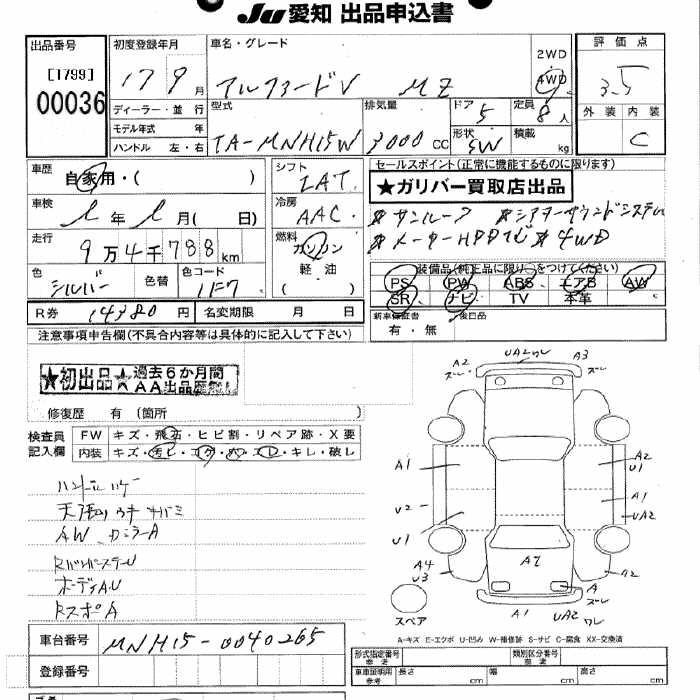 Ju 愛知 出品申込書
出品番号
[1799]
00036
初度登録年月
17 9 月
ディーラー・並 行
モデル年式 年
ハンドル 左・右
車名・グレード
アルファードV MZ
2WD
4WD
型式
TA-MNH15W
排気量
3000 CC
ドア
5
定員
8 人
形状
SW
積載
kg
評価点
3.5
外装 内装
C
車歴
自家用・( )
車検
年 月( 日)
走行
9 万 4 千 788 km
色
シルバー
色替
色コード
1F7
R券 14380 円
名変期限 月 日
シフト
IAT
冷房
AAC
燃料
ガソリン
軽油
( )
セールスポイント(正常に機能するものに限ります)
★ガリバー買取店出品
★サンルーフ ★シアターサウンドシステム
★メーターHDDナビ ★4WD
装備品(純正品に限り○をつけてください)
PS PW ABS エアB AW
SR ナビ TV 本革
新車保証書
有・無
後日品
注意事項申告欄(不具合内容等は具体的に記入して下さい)
★初出品★ 過去6か月間
AA出品歴無し
修復歴 有 (箇所 )
検査員
記入欄
FW キズ・飛石・ヒビ割・リペア跡・X要
内装 キズ・汚ビ・コゲ・穴・スレ・キレ・破レ
ハンドルハゲ
AW、カラーA
ボーディA.U
RスポA
車台番号 MNH15-0040265
登録番号
A2 ズレ UA2 ワレ A3 ズレ
A1 A2 U1
U2 A1 UA2
U1
A4 U3 A2 A A2
スペア A1 UA2 ワレ
A-キズ E-エクボ U-凹み W-補修跡 S-サビ C-腐食 XX-交換済
形式指定番号 参考
類別区分番号 参考
車庫証明用 参考 長さ cm 幅 cm 高さ cm